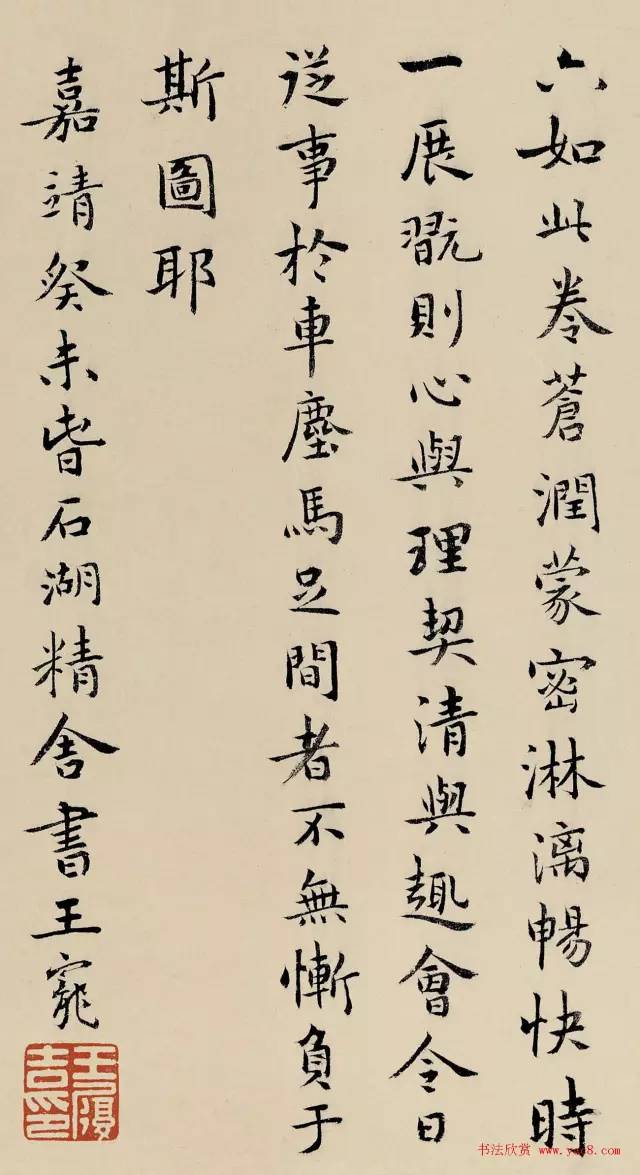 六如此卷蒼潤蒙密淋漓暢快時
一展翫則心與理契清與趣會今日
從事於車塵馬足間者不無慚負于
斯圖耶
嘉靖癸未皆石湖精舍書王寵
王履吉印
书法欣赏